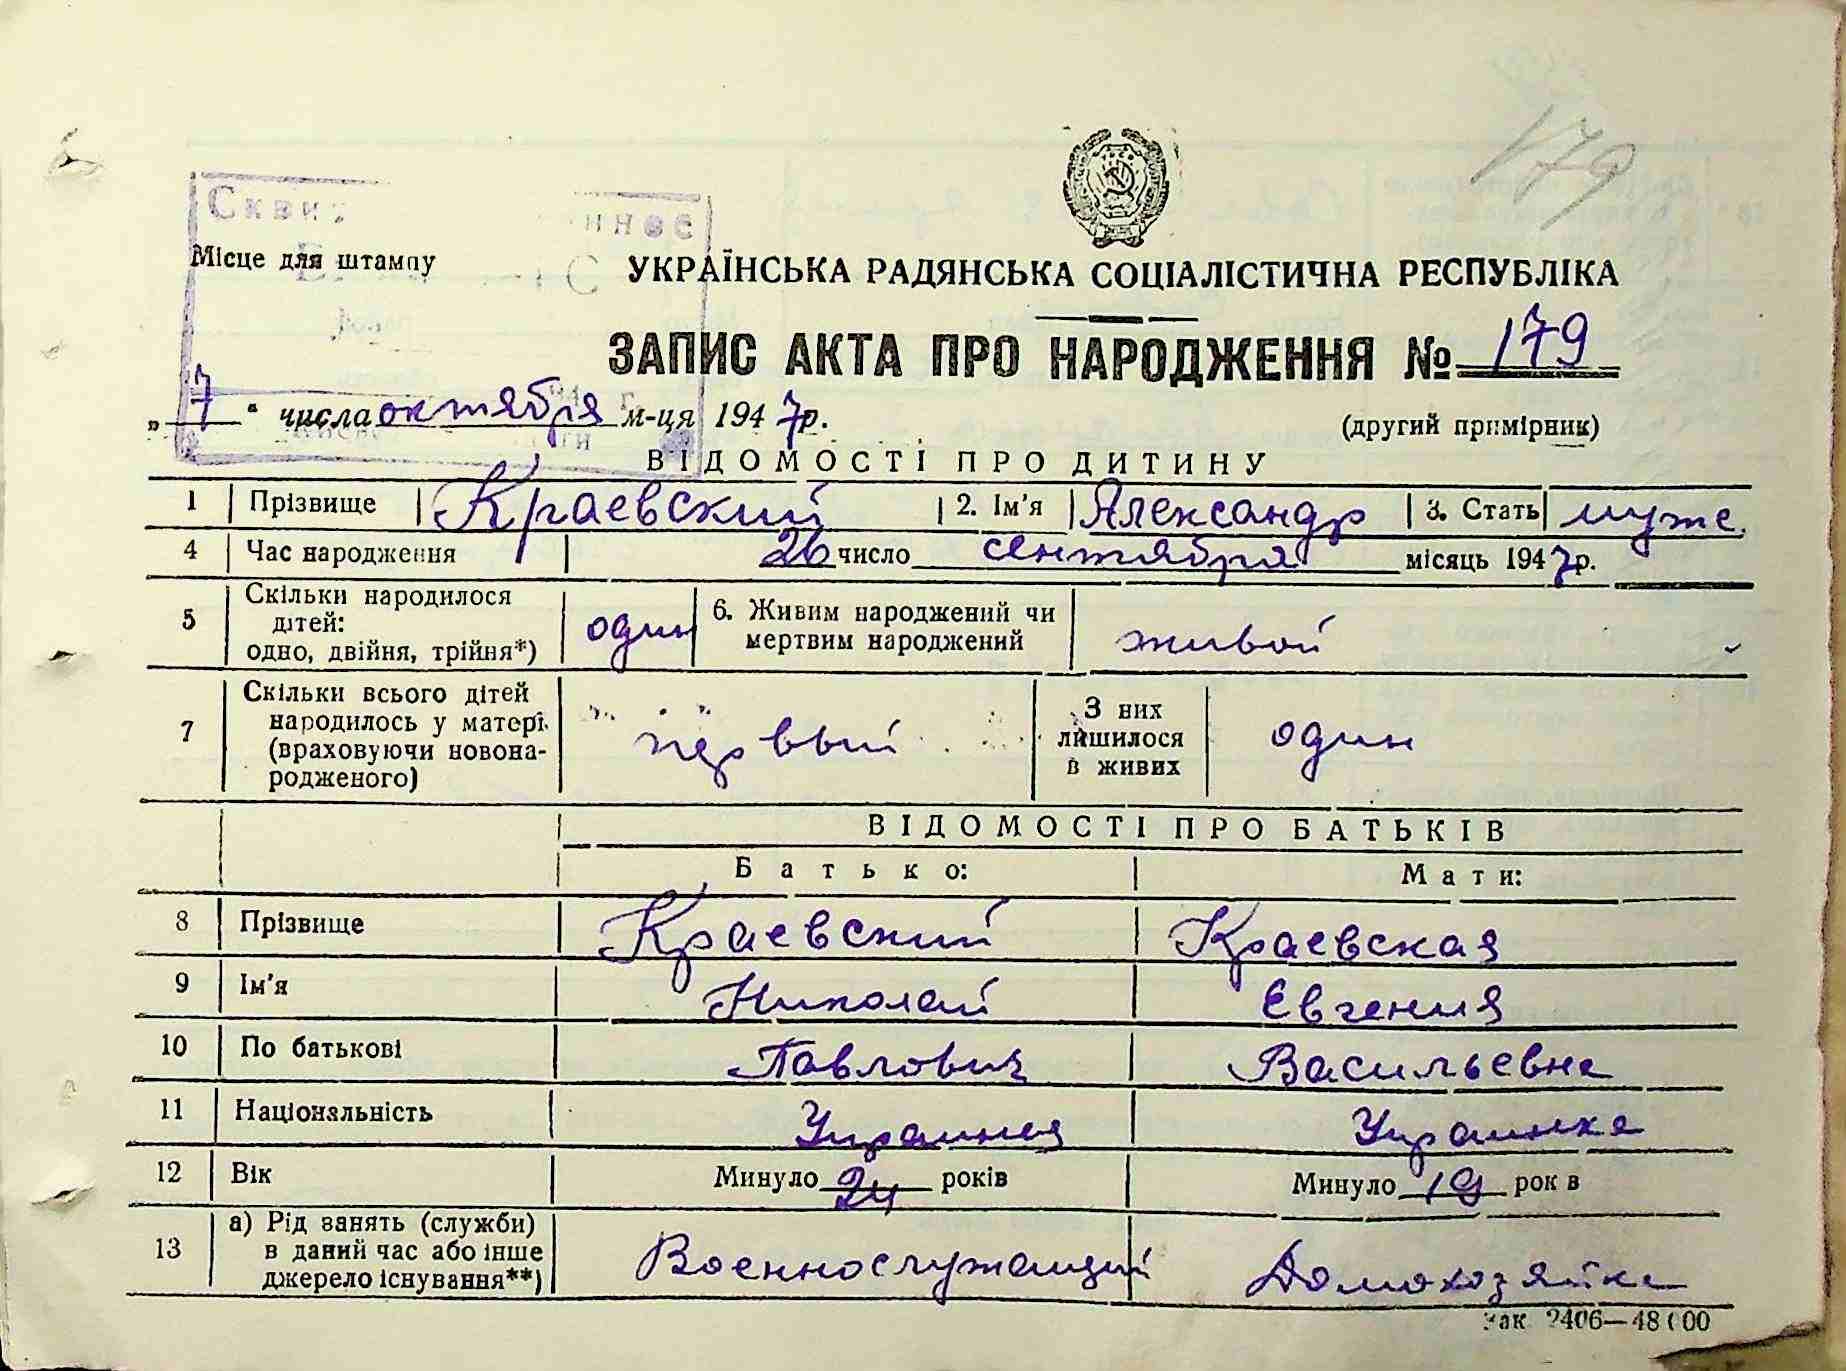 179
УКРАЇНСЬКА РАДЯНСЬКА СОЦІАЛІСТИЧНА РЕСПУБЛІКА
Місце для штампу
ЗАПИС АКТА ПРО НАРОДЖЕННЯ № 179
„ 7 “ числа октября м-ця 1947р.
(другий примірник)
ВІДОМОСТІ ПРО ДИТИНУ
1 Прізвище Краевский 2. Ім'я Александр 3. Стать муже.
4 Час народження 26 число сентября місяць 1947р.
5 Скільки народилося дітей: одно, двійня, трійня*) один 6. Живим народжений чи мертвим народжений живой
7 Скільки всього дітей народилось у матері (враховуючи новонародженого) первый З них лишилося в живих один
ВІДОМОСТІ ПРО БАТЬКІВ
Батько: Мати:
8 Прізвище Краевский Краевская
9 Ім'я Николай Евгения
10 По батькові Павлович Васильевна
11 Національність Украинец Украинка
12 Вік Минуло 24 років Минуло 19 рок в
13 а) Рід занять (служби) в даний час або інше джерело існування**) Военнослужащий Домохозяйка
Зак 2406—48000